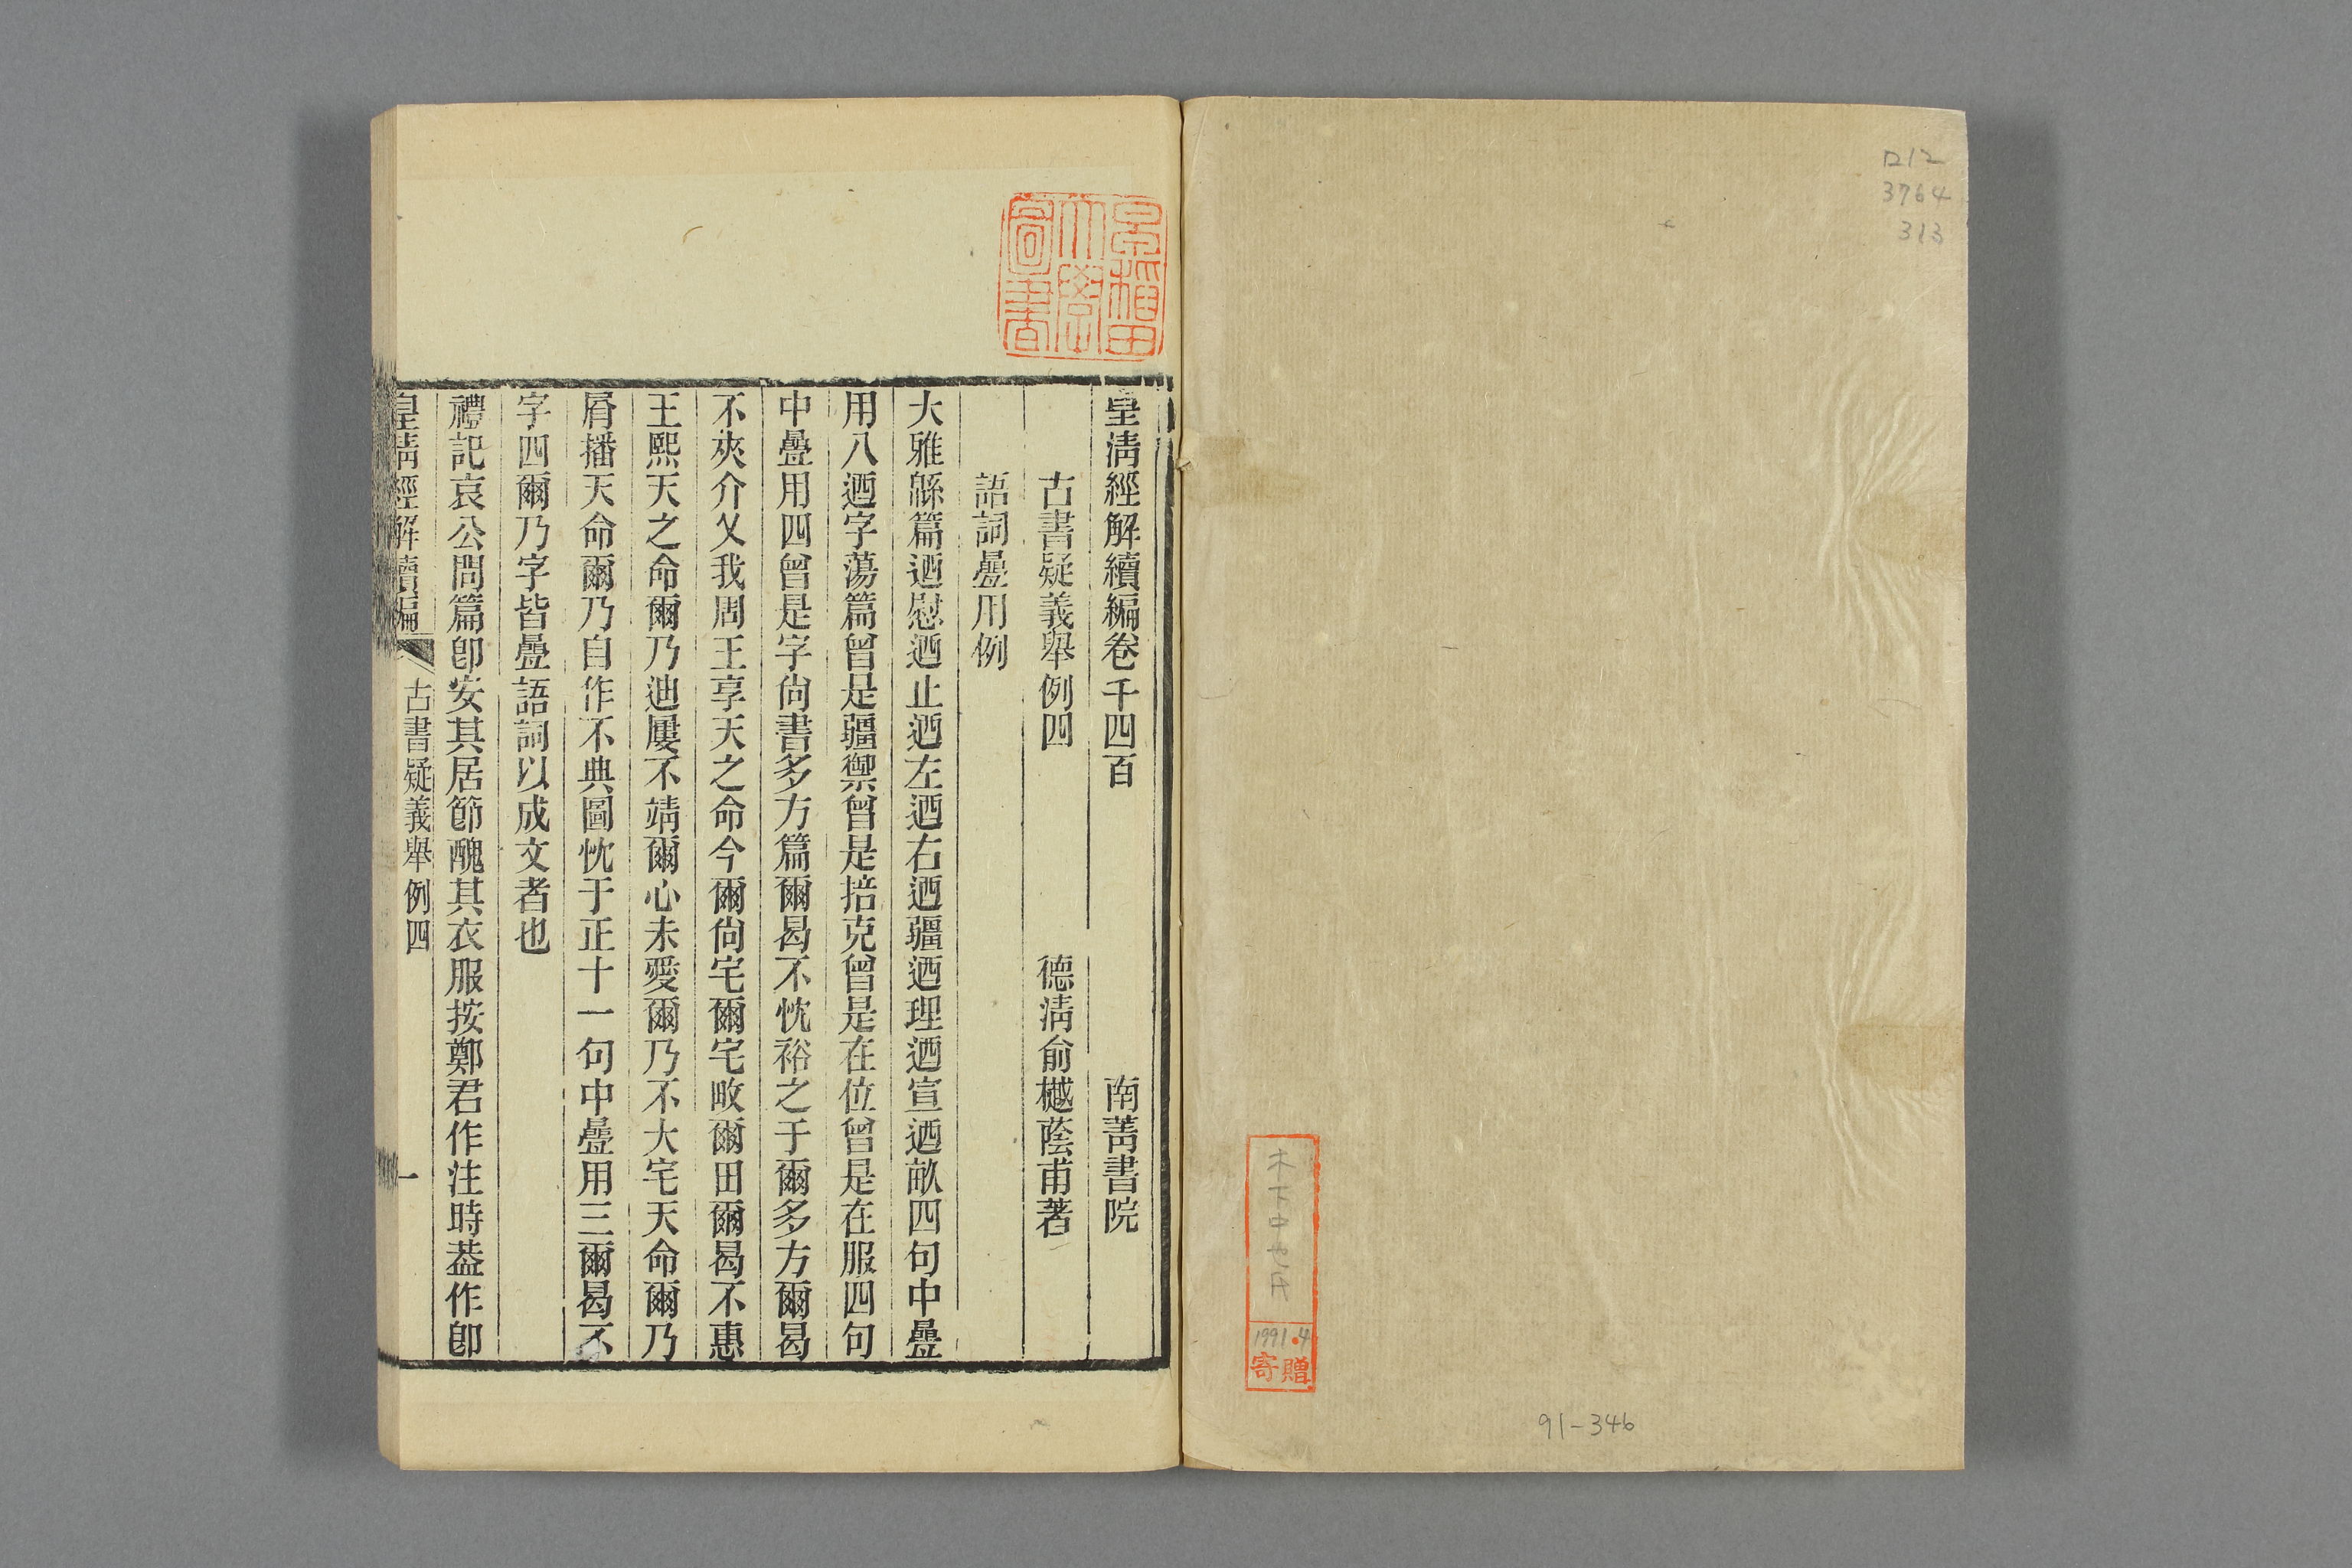 ロ12
3764
313
木下中也氏
1991.4
寄贈
91-346
早稲田大學圖書
皇淸經解續編卷千四百 南菁書院
古書疑義舉例四 德淸俞樾蔭甫著
語詞曡用例
大雅緜篇迺慰迺止迺左迺右迺疆迺理迺宣迺畝四句中曡
用八迺字蕩篇曾是彊禦曾是掊克曾是在位曾是在服四句
中曡用四曾是字尙書多方篇爾曷不忱裕之于爾多方爾曷
不夾介乂我周王享天之命今爾尙宅爾宅畋爾田爾曷不惠
王熙天之命爾乃迪屢不靖爾心未愛爾乃不大宅天命爾乃
屑播天命爾乃自作不典圖忱于正十一句中曡用三爾曷不
字四爾乃字皆曡語詞以成文者也
禮記哀公問篇卽安其居節醜其衣服按鄭君作注時葢作卽
皇淸經解續編 古書疑義舉例四 一